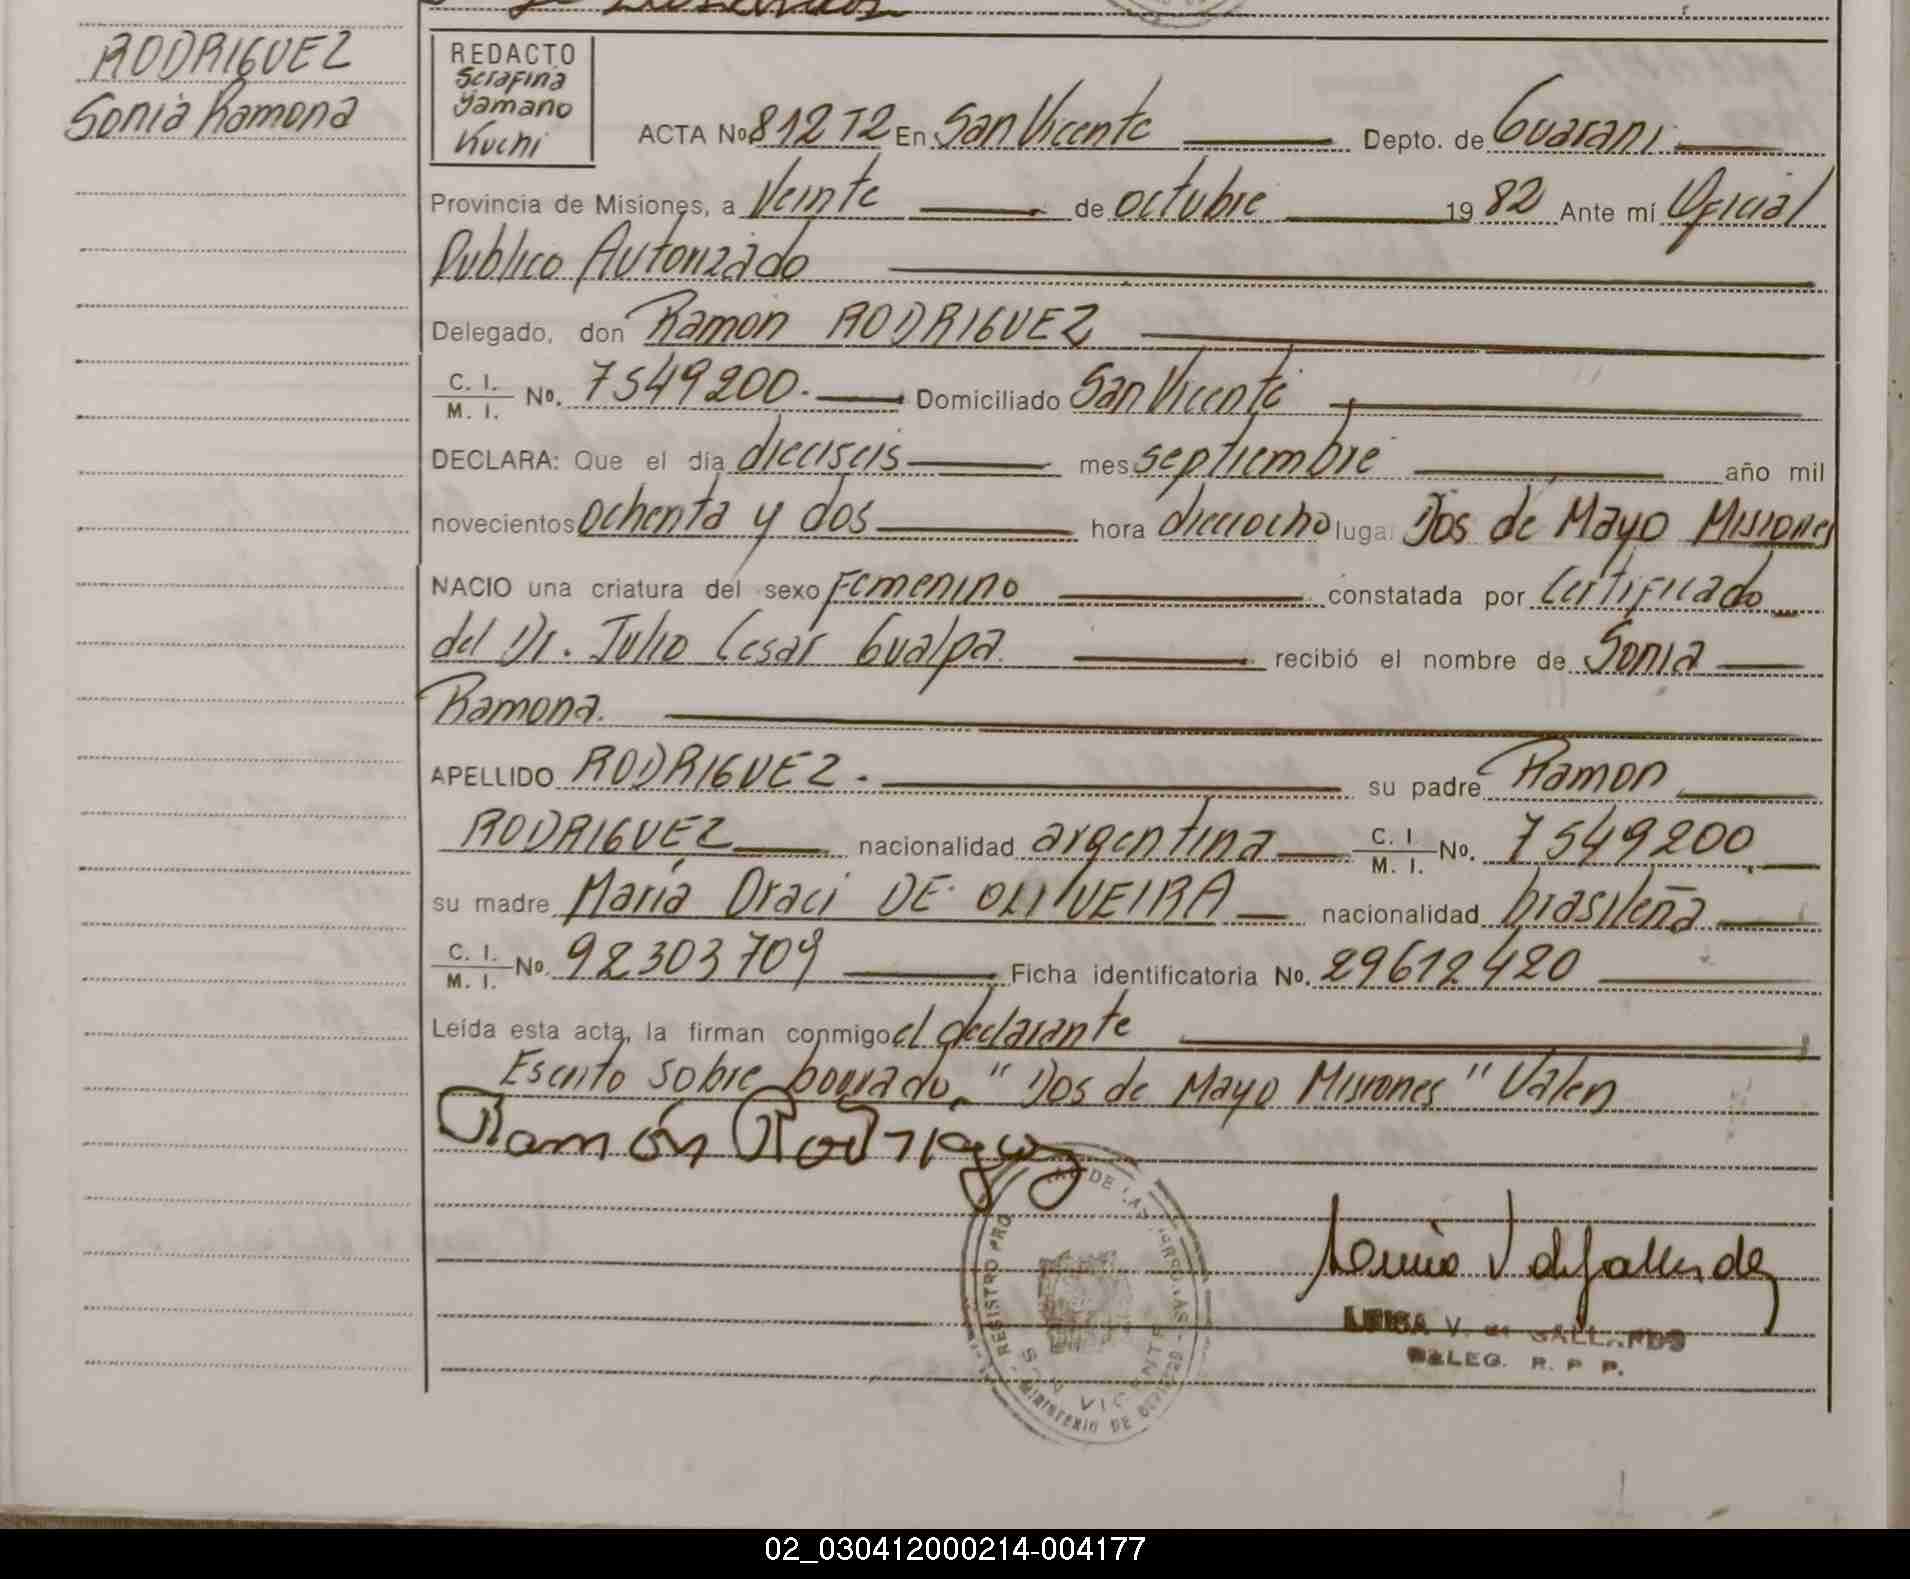 RODRIGUEZ
Sonia Ramona
REDACTO
Serafina
Yamano
Kuchi
ACTA No. 812 T2 En San Vicente Depto. de Guarani
Provincia de Misiones, a Veinte de octubre 19 82 Ante mí Oficial
Publico Autorizado
Delegado, don Ramon RODRIGUEZ
C. I. / M. I. No. 7549200. Domiciliado San Vicente
DECLARA: Que el día dieciseis mes septiembre año mil
novecientos ochenta y dos hora dieciocho luga Dos de Mayo Misiones
NACIO una criatura del sexo Femenino constatada por Certificado
del Dr. Julio Cesar Gualpa. recibió el nombre de Sonia
Ramona.
APELLIDO RODRIGUEZ. su padre Ramon
RODRIGUEZ nacionalidad argentina C. I. / M. I. No. 7549200
su madre Maria Oraci DE OLIVEIRA nacionalidad brasileña
C. I. / M. I. No. 92303709 Ficha identificatoria No. 29612420
Leída esta acta, la firman conmigo el declarante
Escrito sobre borrado. "Dos de Mayo Misiones" Valen
Ramón Rodriguez
V. GALLARDO
DELEG. R. P. P.
REGISTRO PRO DE LAS
SAN VICENTE
MINISTERIO DE
02_030412000214-004177